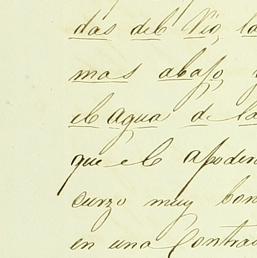 das del Rio, la
mas abajo, y
el agua de la
que el apoder
curzo muy con
en una Contra